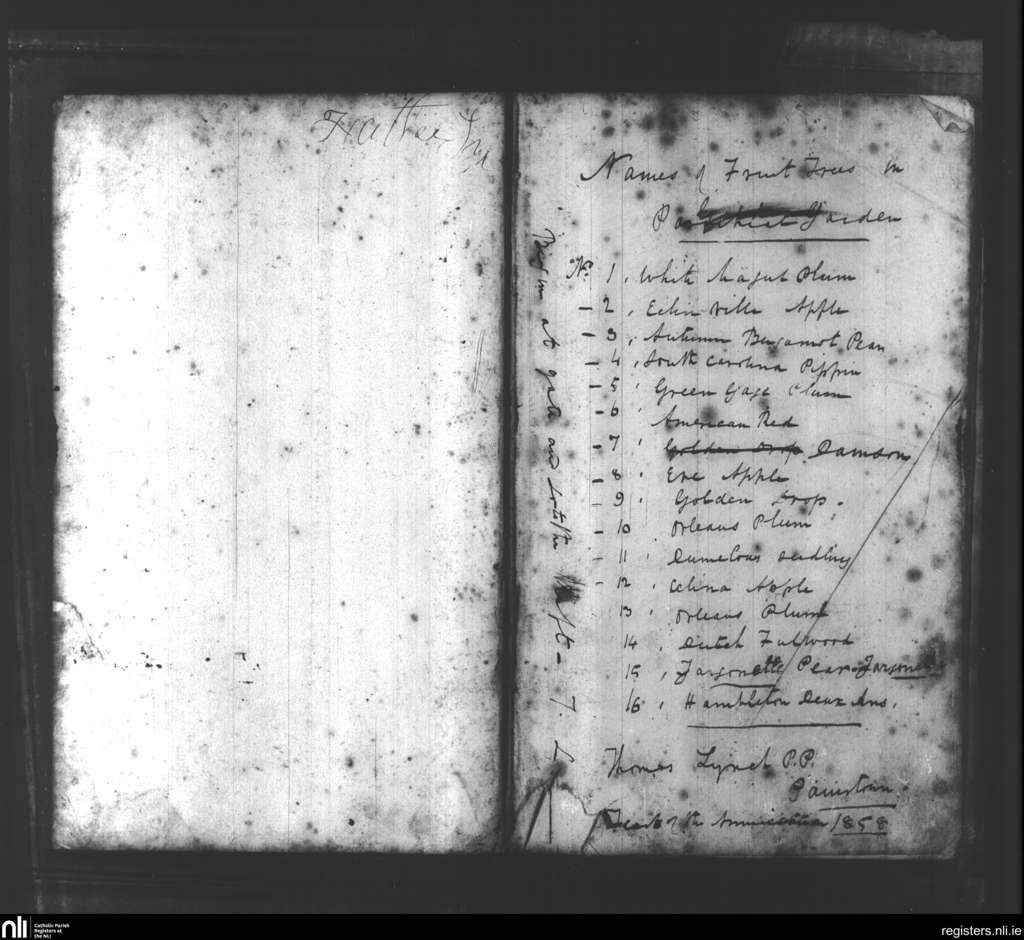 Names of Fruit Trees in
Garden
No. 1, White Magul Plum
- 2, Ecklinville Apple
- 3, Autumn Bergamot Pear
- 4, South Carolina Pippin
- 5, Green Gage Plum
- 6, American Red
- 7, Golden Drop Damson
- 8, Eve Apple
- 9, Golden Drop.
- 10, Orleans Plum
- 11, Dumelows Seedling
- 12, Celina Apple
13, Orleans Plum
14, Dutch Fulwood
15, Jargonelle Pear
16, Hambleton Deux Ans.
Thomas Lynch P.P.
Painstown
Feast of the 1858
Begin at gate and to the left - T. L
nli
Catholic Parish
Registers at
the NLI
registers.nli.ie